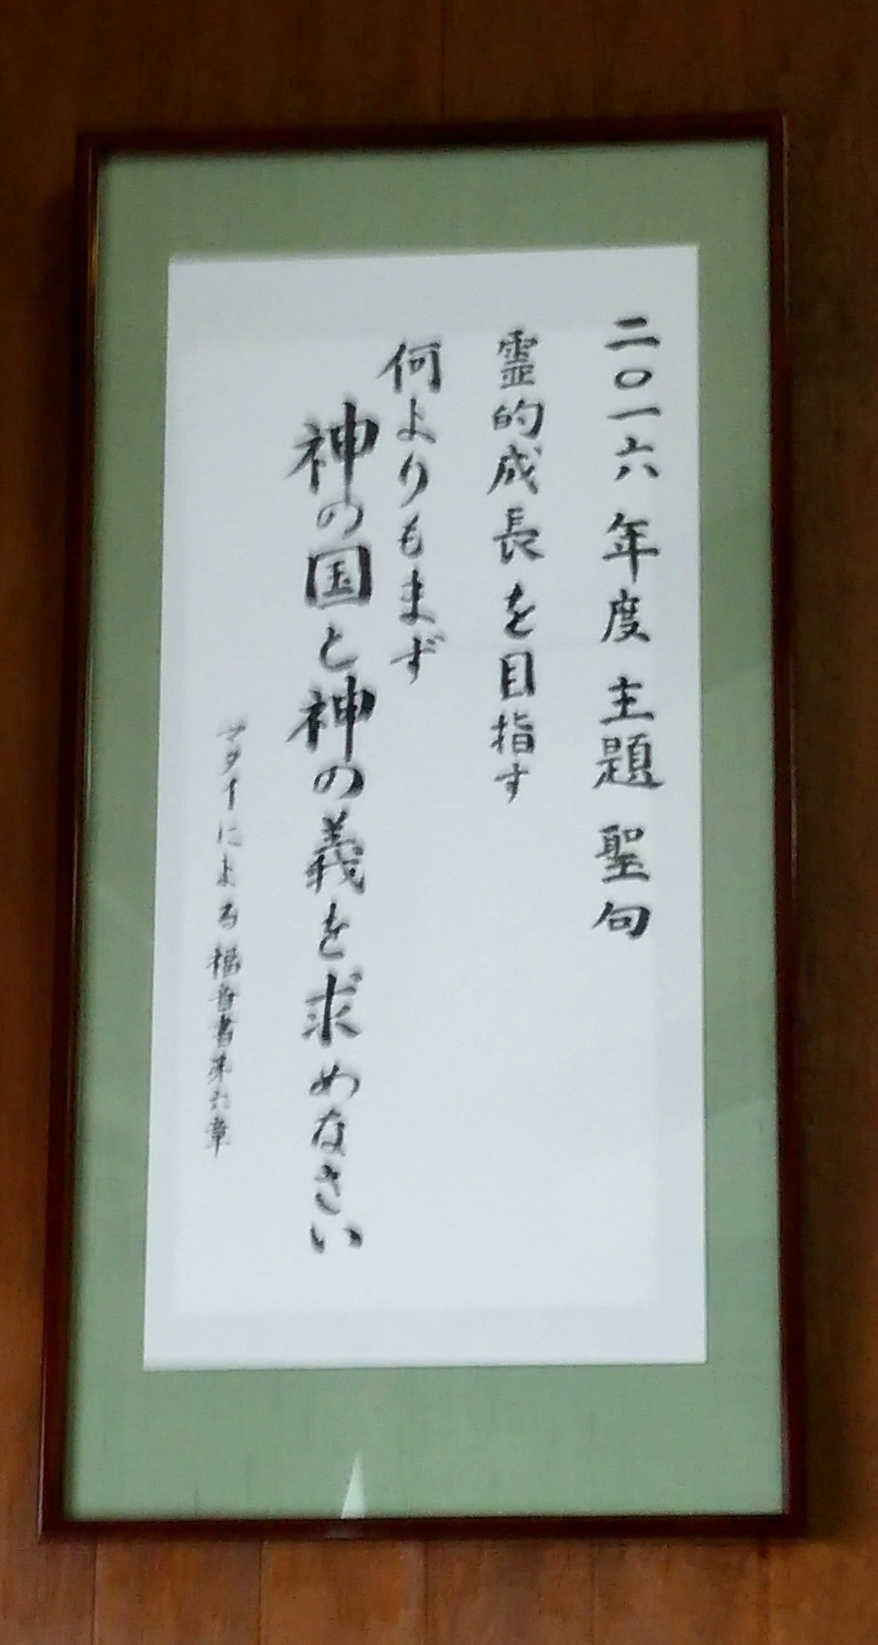 二〇一六年度 主題 聖句
霊的成長を目指す
何よりもまず
神の国と神の義を求めなさい
マタイによる福音書第六章